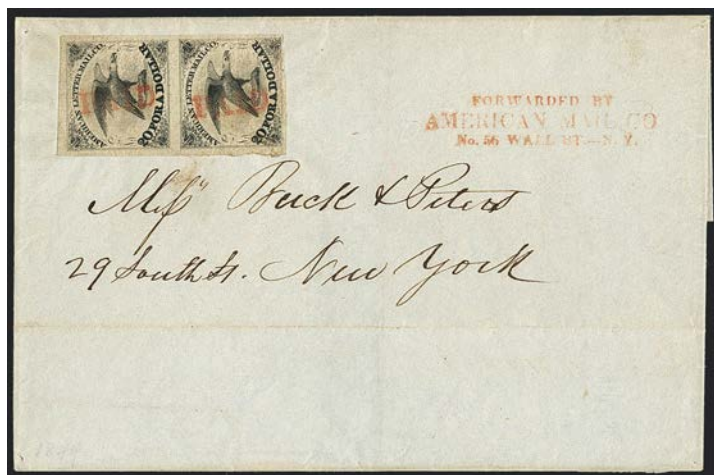 AMERICAN LETTER MAIL CO.
20 FOR A DOLLAR
PAID
AMERICAN LETTER MAIL CO.
20 FOR A DOLLAR
PAID
FORWARDED BY
AMERICAN MAIL CO
No. 56 WALL ST.—N. Y.
Messrs Buck & Peters
29 South St. New York
1844